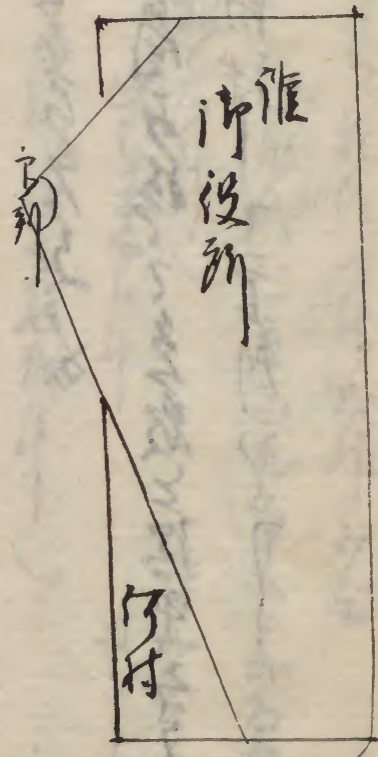 誰
御役所
何村